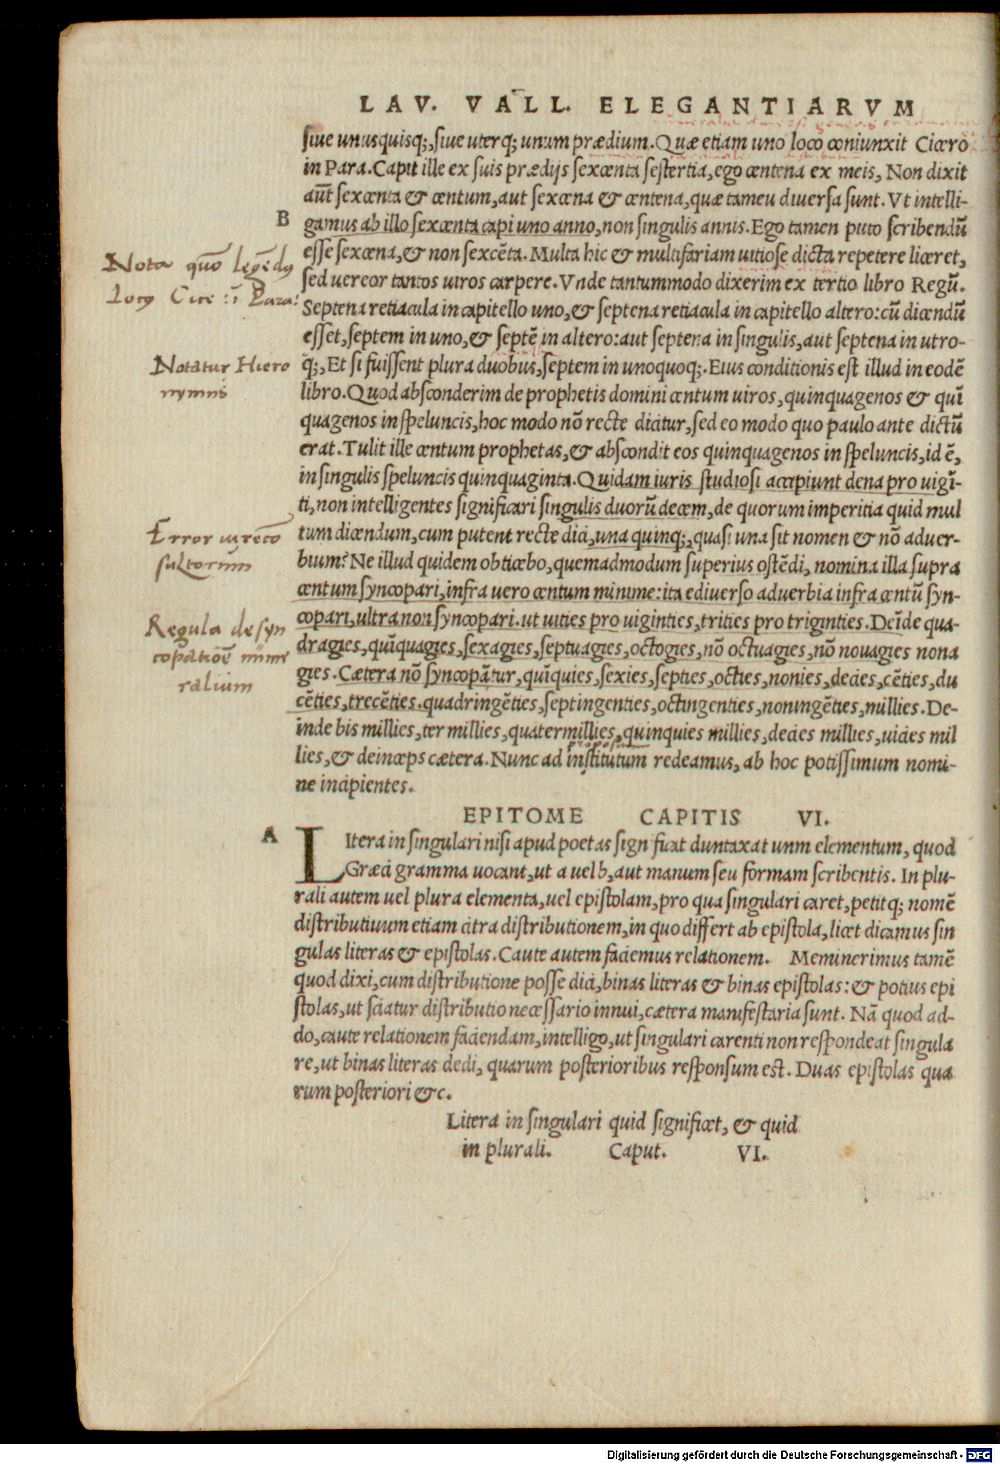 LAV. VALL. ELEGANTIARVM
siue unusquisq;, siue uterq; unum prædium. Quæ etiam uno loco coniunxit Cicero
in Para. Capit ille ex suis prædijs sexcenta sestertia, ego centena ex meis, Non dixit
aūt sexcenta & centum, aut sexcena & centena, quæ tameu diuersa sunt. Vt intelli-
B
gamus ab illo sexcenta capi uno anno, non singulis annis. Ego tamen puto scribendū
esse sexcena, & non sexcēta. Multa hic & multifariam uitiose dicta repetere liceret,
Nota quō legēdus
locus Cice: ī Para:
sed uereor tantos uiros carpere. Vnde tantummodo dixerim ex tertio libro Regū.
Septena retiacula in capitello uno, & septena retiacula in capitello altero: cū dicendū
esset, septem in uno, & septē in altero: aut septena in singulis, aut septena in utro-
Notatur Hiero
nymus
q;, Et si fuissent plura duobus, septem in unoquoq;. Eius conditionis est illud in eodē
libro. Quod absconderim de prophetis domini centum uiros, quinquagenos & quī
quagenos in speluncis, hoc modo nō recte dicitur, sed eo modo quo paulo ante dictū
erat. Tulit ille centum prophetas, & abscondit eos quinquagenos in speluncis, id ē,
in singulis speluncis quinquaginta. Quidam iuris studiosi accipiunt dena pro uigī-
ti, non intelligentes significari singulis duorū decem, de quorum imperitia quid mul
Error iurecō
sultorum
tum dicendum, cum putent recte dici, una quinq;, quasi una sit nomen & nō aduer-
bium? Ne illud quidem obticebo, quemadmodum superius ostēdi, nomina illa supra
centum syncopari, infra uero centum minime: ita ediuerso aduerbia infra centū syn-
Regula de syn
copatiōe nume
ralium
copari, ultra non syncopari. ut uities pro uiginties, trities pro triginties. Deīde qua-
dragies, quīquagies, sexagies, septuagies, octogies, nō octuagies, nō nouagies nona
gies. Cætera nō syncopātur, quīquies, sexies, septies, octies, nonies, decies, cēties, du
cēties, trecēties, quadringēties, septingenties, octingenties, noningēties, millies. De-
inde bis millies, ter millies, quater millies, quinquies millies, decies millies, uicies mil
propositum
lies, & deinceps cætera. Nunc ad institutum redeamus, ab hoc potissimum nomi-
ne incipientes.
EPITOME CAPITIS VI.
A
LItera in singulari nisi apud poetas signficat duntaxat unm elementum, quod
Græci gramma uocant, ut a uel b, aut manum seu formam scribentis. In plu-
rali autem uel plura elementa, uel epistolam, pro qua singulari caret, petitq; nomē
distributiuum etiam citra distributionem, in quo differt ab epistola, licet dicamus sin
gulas literas & epistolas. Caute autem faciemus relationem. Meminerimus tamē
quod dixi, cum distributione posse dici, binas literas & binas epistolas: & potius epi
stolas, ut sciatur distributio necessario innui, cætera manifestaria sunt. Nā quod ad-
do, caute relationem faciendam, intelligo, ut singulari carenti non respondeat singula
re, ut binas literas dedi, quarum posterioribus responsum est. Duas epistolas qua
rum posteriori &c.
Litera in singulari quid significet, & quid
in plurali. Caput. VI.
Digitalisierung gefördert durch die Deutsche Forschungsgemeinschaft - DFG